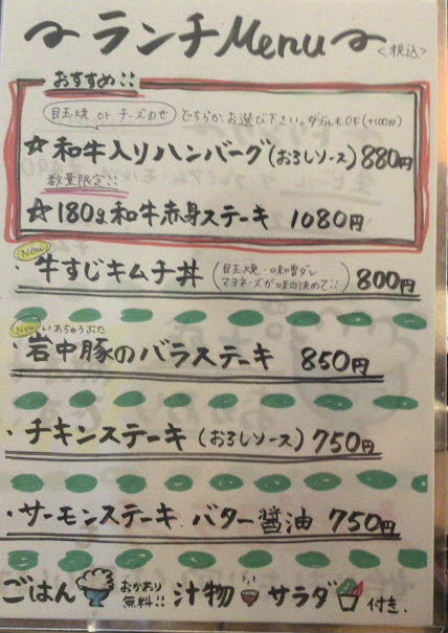 ランチMenu
<税込>
おすすめ!!
目玉焼 or チーズのせ どちらかお選び下さい。ダブルもOK(+100円)
☆和牛入りハンバーグ(おろしソース)880円
数量限定!!
☆180g和牛赤身ステーキ 1080円
New
・牛すじキムチ丼(目玉焼・味噌ダレ
マヨネーズが味の決めて!!) 800円
New いわちゅうぶた
・岩中豚のバラステーキ 850円
・チキンステーキ(おろしソース)750円
・サーモンステーキ バター醤油 750円
ごはん おかわり無料!! 汁物 サラダ 付き.